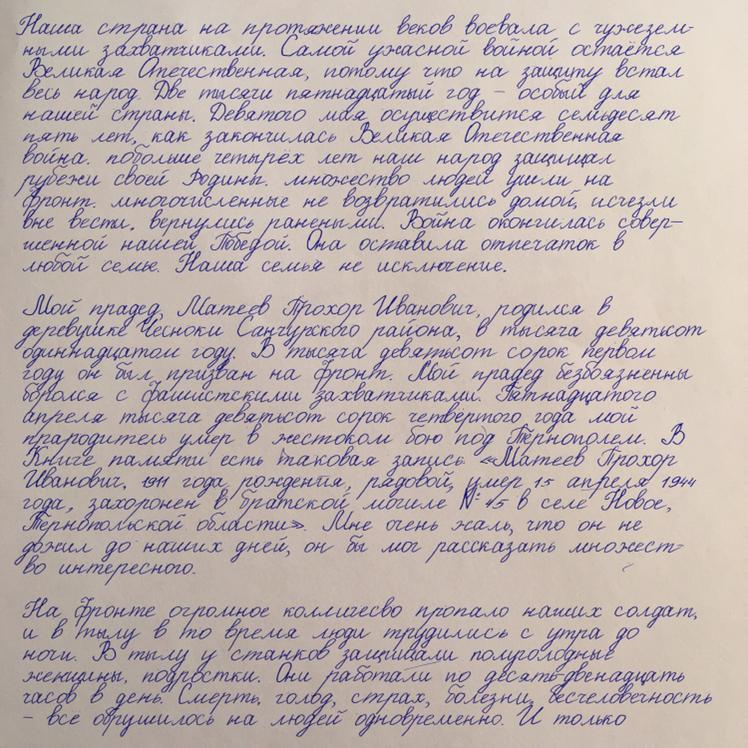 Наша страна на протяжении веков воевала с чужезем-
ными захватчиками. Самой ужасной войной остаётся
Великая Отечественная, потому что на защиту встал
весь народ. Две тысячи пятнадцатый год - особый для
нашей страны. Девятого мая осуществится семьдесят
пять лет, как закончилась Великая Отечественная
война. побольше четырёх лет наш народ защищал
рубежи своей Родины. множество людей ушли на
фронт. многочисленные не возвратились домой, исчезли
вне вести, вернулись ранеными. Война окончилась совер-
шенной нашей Победой. Она оставила отпечаток в
любой семье. Наша семья не исключение.
Мой прадед, Матеев Прохор Иванович, родился в
деревушке Чесноки Санчурского района, в тысяча девятьсот
одиннадцатом году. В тысяча девятьсот сорок первом
году он был призван на фронт. Мой прадед безбоязненны
боролся с фашистскими захватчиками. Пятнадцатого
апреля тысяча девятьсот сорок четвёртого года мой
прародитель умер в жестоком бою под Тернополем. В
Книге памяти есть таковая запись «Матеев Прохор
Иванович, 1911 года рождения, рядовой, умер 15 апреля 1944
года, захоронен в братской могиле № 45 в селе Новое,
Тернопольской области». Мне очень жаль, что он не
дожил до наших дней, он бы мог рассказать множест-
во интересного.
На фронте огромное колличесво пропало наших солдат,
и в тылу в то время люди трудились с утра до
ночи. В тылу у станков защищали полуголодные
женщины, подростки. Они работали по десять-двенадцать
часов в день. Смерть, голод, страх, болезни, бесчеловечность
- все обрушилось на людей одновременно. И только